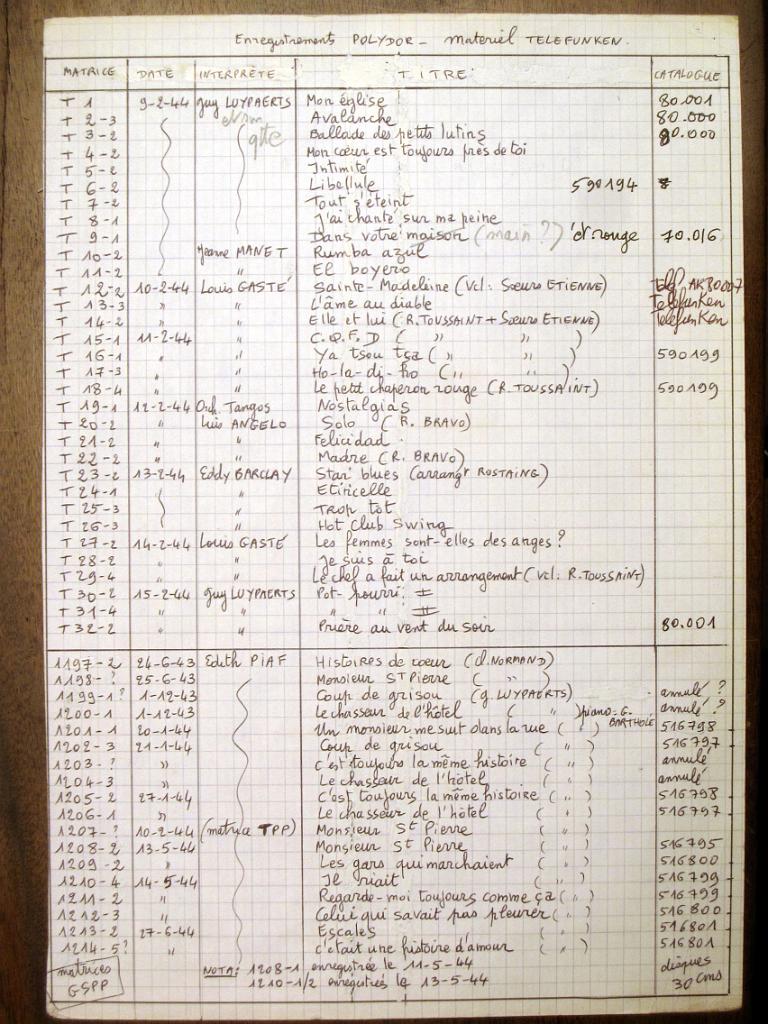 Enregistrements POLYDOR - materiel TELEFUNKEN.
MATRICE DATE INTERPRÈTE TITRE CATALOGUE
T 1 9-2-44 Guy LUYPAERTS Mon église 80.001
T 2-3 Avalanche 80.000
T 3-2 Ballade des petits lutins 80.000
T 4-2 Mon cœur est toujours près de toi
T 5-2 Intimité
T 6-2 Libellule 590194
T 7-2 Tout s'éteint
T 8-1 J'ai chanté sur ma peine
T 9-1 Dans votre maison (main ?) ét. rouge 70.016
T 10-2 Jeanne MANET Rumba azul
T 11-2 " El boyero
T 12-2 10-2-44 Louis GASTÉ Sainte-Madeleine (vcl: Sœurs ETIENNE) Telef. AK80007
T 13-3 " " L'âme au diable Telefunken
T 14-2 " " Elle et lui (R. TOUSSAINT + Sœurs ETIENNE) Telefunken
T 15-1 11-2-44 " C.Q.F.D ( " " )
T 16-1 " " Ya tsou tsa ( " " ) 590199
T 17-3 " " Ho-la-di-ho ( " " )
T 18-4 " " Le petit chaperon rouge (R. TOUSSAINT) 590199
T 19-1 12-2-44 Orch. Tangos Nostalgias
T 20-2 " Luis ANGELO Solo (R. BRAVO)
T 21-2 " " Felicidad
T 22-2 " " Madre (R. BRAVO)
T 23-2 13-2-44 Eddy BARCLAY Star blues (arrangt ROSTAING)
T 24-1 " Etincelle
T 25-3 " Trop tot
T 26-3 " Hot Club Swing
T 27-2 14-2-44 Louis GASTÉ Les femmes sont-elles des anges ?
T 28-2 " " Je suis à toi
T 29-4 " " Le chef a fait un arrangement (vcl: R. TOUSSAINT)
T 30-2 15-2-44 Guy LUYPAERTS Pot-pourri I
T 31-4 " " " " II
T 32-2 " " Prière au vent du soir 80.001
1197-2 24-6-43 Edith PIAF Histoires de cœur (d. NORMAND)
1198-? 25-6-43 Monsieur St Pierre ( " )
1199-1? 1-12-43 Coup de grisou (g. LUYPAERTS) annulé ?
1200-1 1-12-43 Le chasseur de l'hôtel ( " ) piano-G. BARTHOLÉ annulé ?
1201-1 20-1-44 Un monsieur me suit dans la rue ( " ) 516798
1202-3 21-1-44 Coup de grisou ( " ) 516797
1203-? " C'est toujours la même histoire ( " ) annulé
1204-3 " Le chasseur de l'hôtel ( " ) annulé
1205-2 27-1-44 C'est toujours la même histoire ( " ) 516798
1206-1 " Le chasseur de l'hôtel ( " ) 516797
1207-? 10-2-44 (matrice TPP) Monsieur St Pierre ( " )
1208-2 13-5-44 Monsieur St Pierre ( " ) 516795
1209-2 " Les gars qui marchaient ( " ) 516800
1210-4 14-5-44 Il riait ( " ) 516799
1211-2 " Regarde-moi toujours comme ça ( " ) 516799
1212-3 " Celui qui savait pas pleurer ( " ) 516800
1213-2 27-6-44 Escales ( " ) 516801
1214-5? " C'était une histoire d'amour ( " ) 516801
matrices GSPP
NOTA: 1208-1 enregistrée le 11-5-44
1210-1/2 enregistrés le 13-5-44
disques 30 cms